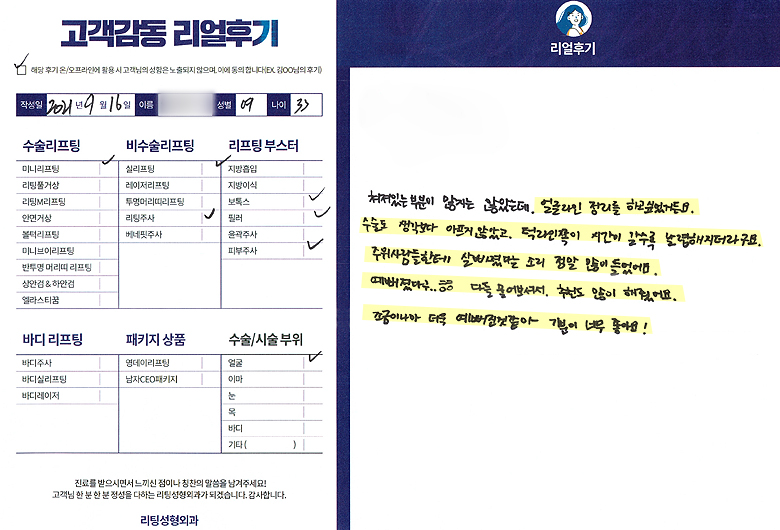 고객감동 리얼후기
해당 후기 온/오프라인에 활용 시 고객님의 성함은 노출되지 않으며, 이에 동의 합니다(EX. 김OO님의 후기)
작성일 2021 년 9 월 16 일 이름 성별 여 나이 33
수술리프팅
미니리프팅
리팅풀거상
리팅M리프팅
안면거상
볼턱리프팅
미니브이리프팅
반투명 머리띠 리프팅
상안검 & 하안검
엘라스티꿈
비수술리프팅
실리프팅
레이저리프팅
투명머리띠리프팅
리팅주사
베네핏주사
리프팅 부스터
지방흡입
지방이식
보톡스
필러
윤곽주사
피부주사
바디 리프팅
바디주사
바디실리프팅
바디레이저
패키지 상품
영데이리프팅
남자CEO패키지
수술/시술 부위
얼굴
이마
눈
목
바디
기타 ( )
진료를 받으시면서 느끼신 점이나 칭찬의 말씀을 남겨주세요!
고객님 한 분 한 분 정성을 다하는 리팅성형외과가 되겠습니다. 감사합니다.
리팅성형외과
리얼후기
쳐져있는 부분이 많지는 않았는데, 얼굴라인 정리를 하고싶었거든요.
수술도 생각보다 아프지 않았고, 턱라인쪽이 시간이 갈수록 날렵해지더라구요.
주위사람들한테 살빠졌냐는 소리 정말 많이들었어요.
예뻐졌다구.. 다들 물어보셔서, 추천도 많이 해줬어요.
조금이나마 더욱 예뻐진것같아 기분이 너무 좋아요!